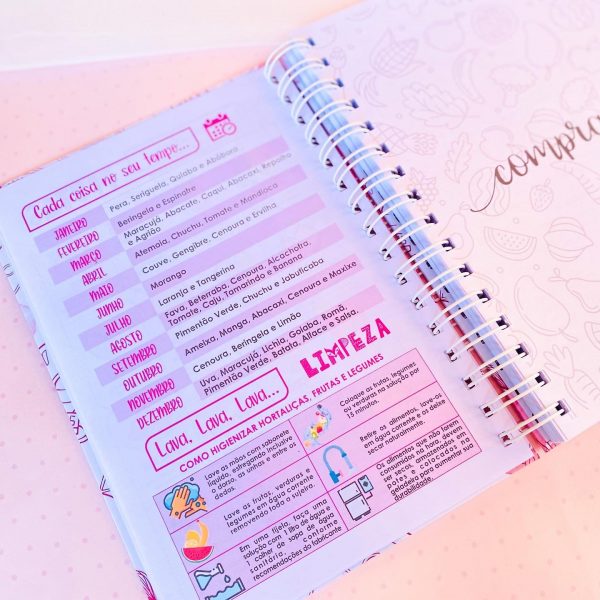 Cada coisa no seu tempo...
JANEIRO Pera, Seriguela, Quiabo e Abóbora
FEVEREIRO Beringela e Espinafre
MARÇO Maracujá, Abacate, Caqui, Abacaxi, Repolho
e Agrião
ABRIL Atemoia, Chuchu, Tomate e Mandioca
MAIO Couve, Gengibre, Cenoura e Ervilha
JUNHO Morango
JULHO Laranja e Tangerina
AGOSTO Fava, Beterraba, Cenoura, Alcachofra,
Tomate, Caju, Tamarindo e Banana
SETEMBRO Pimentão Verde, Chuchu e Jabuticaba
OUTUBRO Ameixa, Manga, Abacaxi, Cenoura e Maxixe
NOVEMBRO Cenoura, Beringela e Limão
DEZEMBRO Uva, Maracujá, Lichia, Goiaba, Romã,
Pimentão Verde, Batata, Alface e Salsa.
Lava, Lava, Lava...
LIMPEZA
COMO HIGIENIZAR HORTALIÇAS, FRUTAS E LEGUMES
Lave as mãos com sabonete
líquido esfregando inclusive
o dorso, as unhas e entre os
dedos.
Lave as frutas, verduras e
legumes em água corrente
removendo toda a sujeira.
Em uma tijela, faça uma
solução com 1 litro de água e
1 colher de sopa de água
sanitária, conforme
recomendações do fabricante
Coloque as frutas, legumes
ou verduras na solução por
15 minutos.
Retire os alimentos, lave-os
em água corrente e os deixe
secar naturalmente.
Os alimentos que não forem
consumidos na hora, devem
ser secos, armazenados em
potes e colocados na
geladeira para aumentar sua
durabilidade.
compra